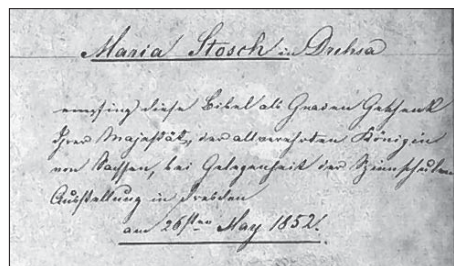 Maria Stosch in Drehsa
empfing diese Bibel als Gnaden Geschenk
Ihrer Majestät, der allverehrten Königin
von Sachsen, bei Gelegenheit der Spinnschulen
Ausstellung in Dresden
am 26sten May 1852.